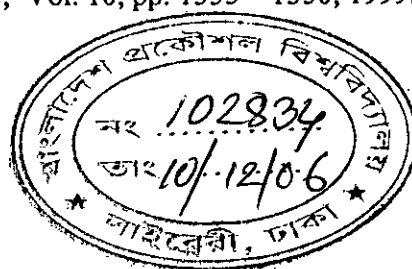 Vol. 10, pp. 1333 – 1336, 1999.
বাংলাদেশ প্রকৌশল বিশ্ববিদ্যালয়
নং 102834
তাং 10/12/06
★ লাইব্রেরী, ঢাকা ★